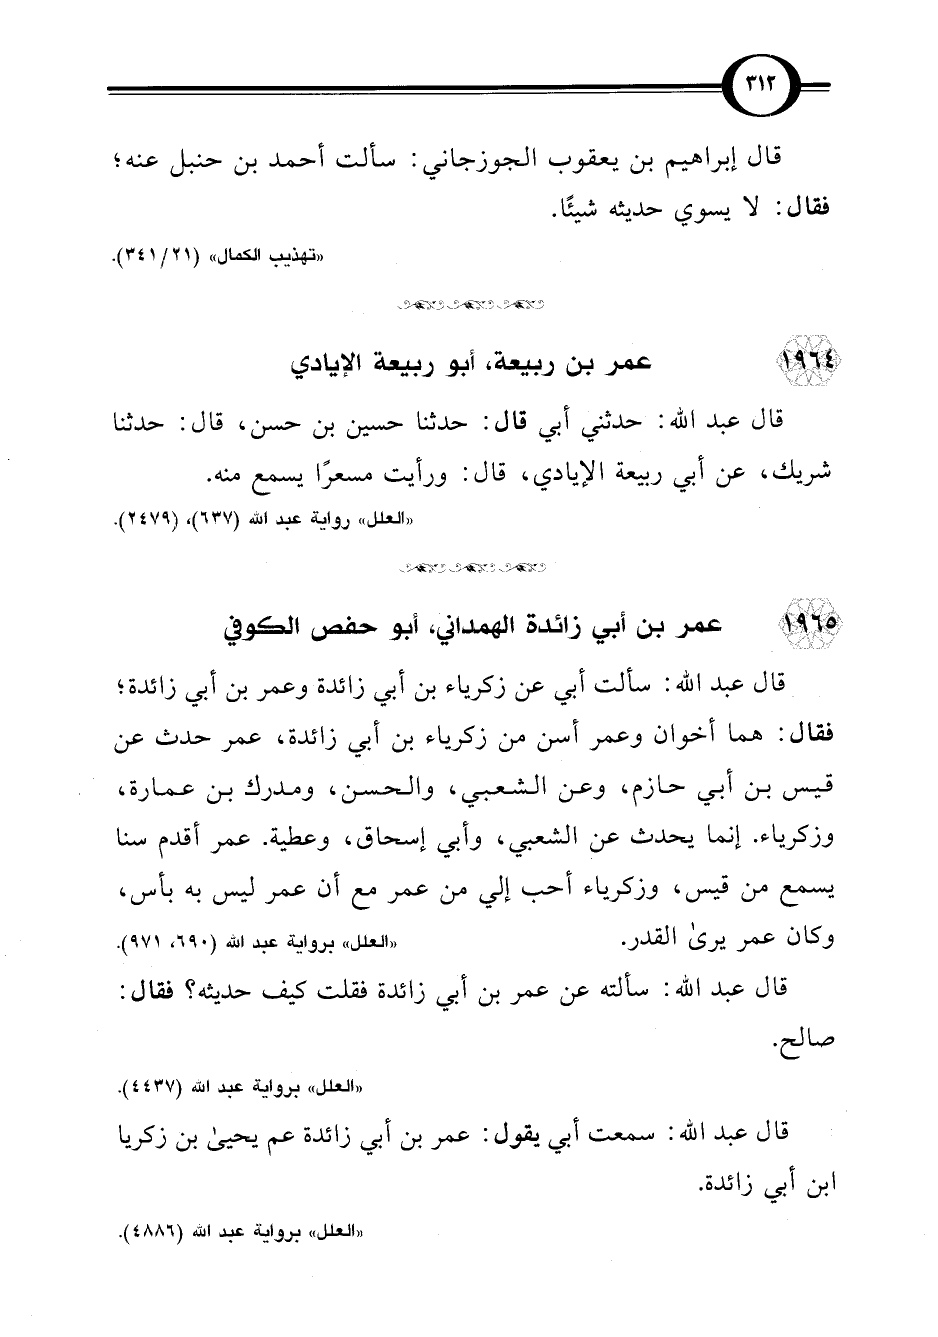 ٣١٢
قال إبراهيم بن يعقوب الجوزجاني: سألت أحمد بن حنبل عنه؛
فقال: لا يسوي حديثه شيئًا.
«تهذيب الكمال» (٢١/ ٣٤١).
١٩٦٤ عمر بن ربيعة، أبو ربيعة الإيادي
قال عبد الله: حدثني أبي قال: حدثنا حسين بن حسن، قال: حدثنا
شريك، عن أبي ربيعة الإيادي، قال: ورأيت مسعرًا يسمع منه.
«العلل» رواية عبد الله (٦٣٧)، (٢٤٧٩).
١٩٦٥ عمر بن أبي زائدة الهمداني، أبو حفص الكوفي
قال عبد الله: سألت أبي عن زكرياء بن أبي زائدة وعمر بن أبي زائدة؛
فقال: هما أخوان وعمر أسن من زكرياء بن أبي زائدة، عمر حدث عن
قيس بن أبي حازم، وعن الشعبي، والحسن، ومدرك بن عمارة،
وزكرياء. إنما يحدث عن الشعبي، وأبي إسحاق، وعطية. عمر أقدم سنا
يسمع من قيس، وزكرياء أحب إلي من عمر مع أن عمر ليس به بأس،
وكان عمر يرىٰ القدر. «العلل» برواية عبد الله (٦٩٠، ٩٧١).
قال عبد الله: سألته عن عمر بن أبي زائدة فقلت كيف حديثه؟ فقال:
صالح.
«العلل» برواية عبد الله (٤٤٣٧).
قال عبد الله: سمعت أبي يقول: عمر بن أبي زائدة عم يحيىٰ بن زكريا
ابن أبي زائدة.
«العلل» برواية عبد الله (٤٨٨٦).